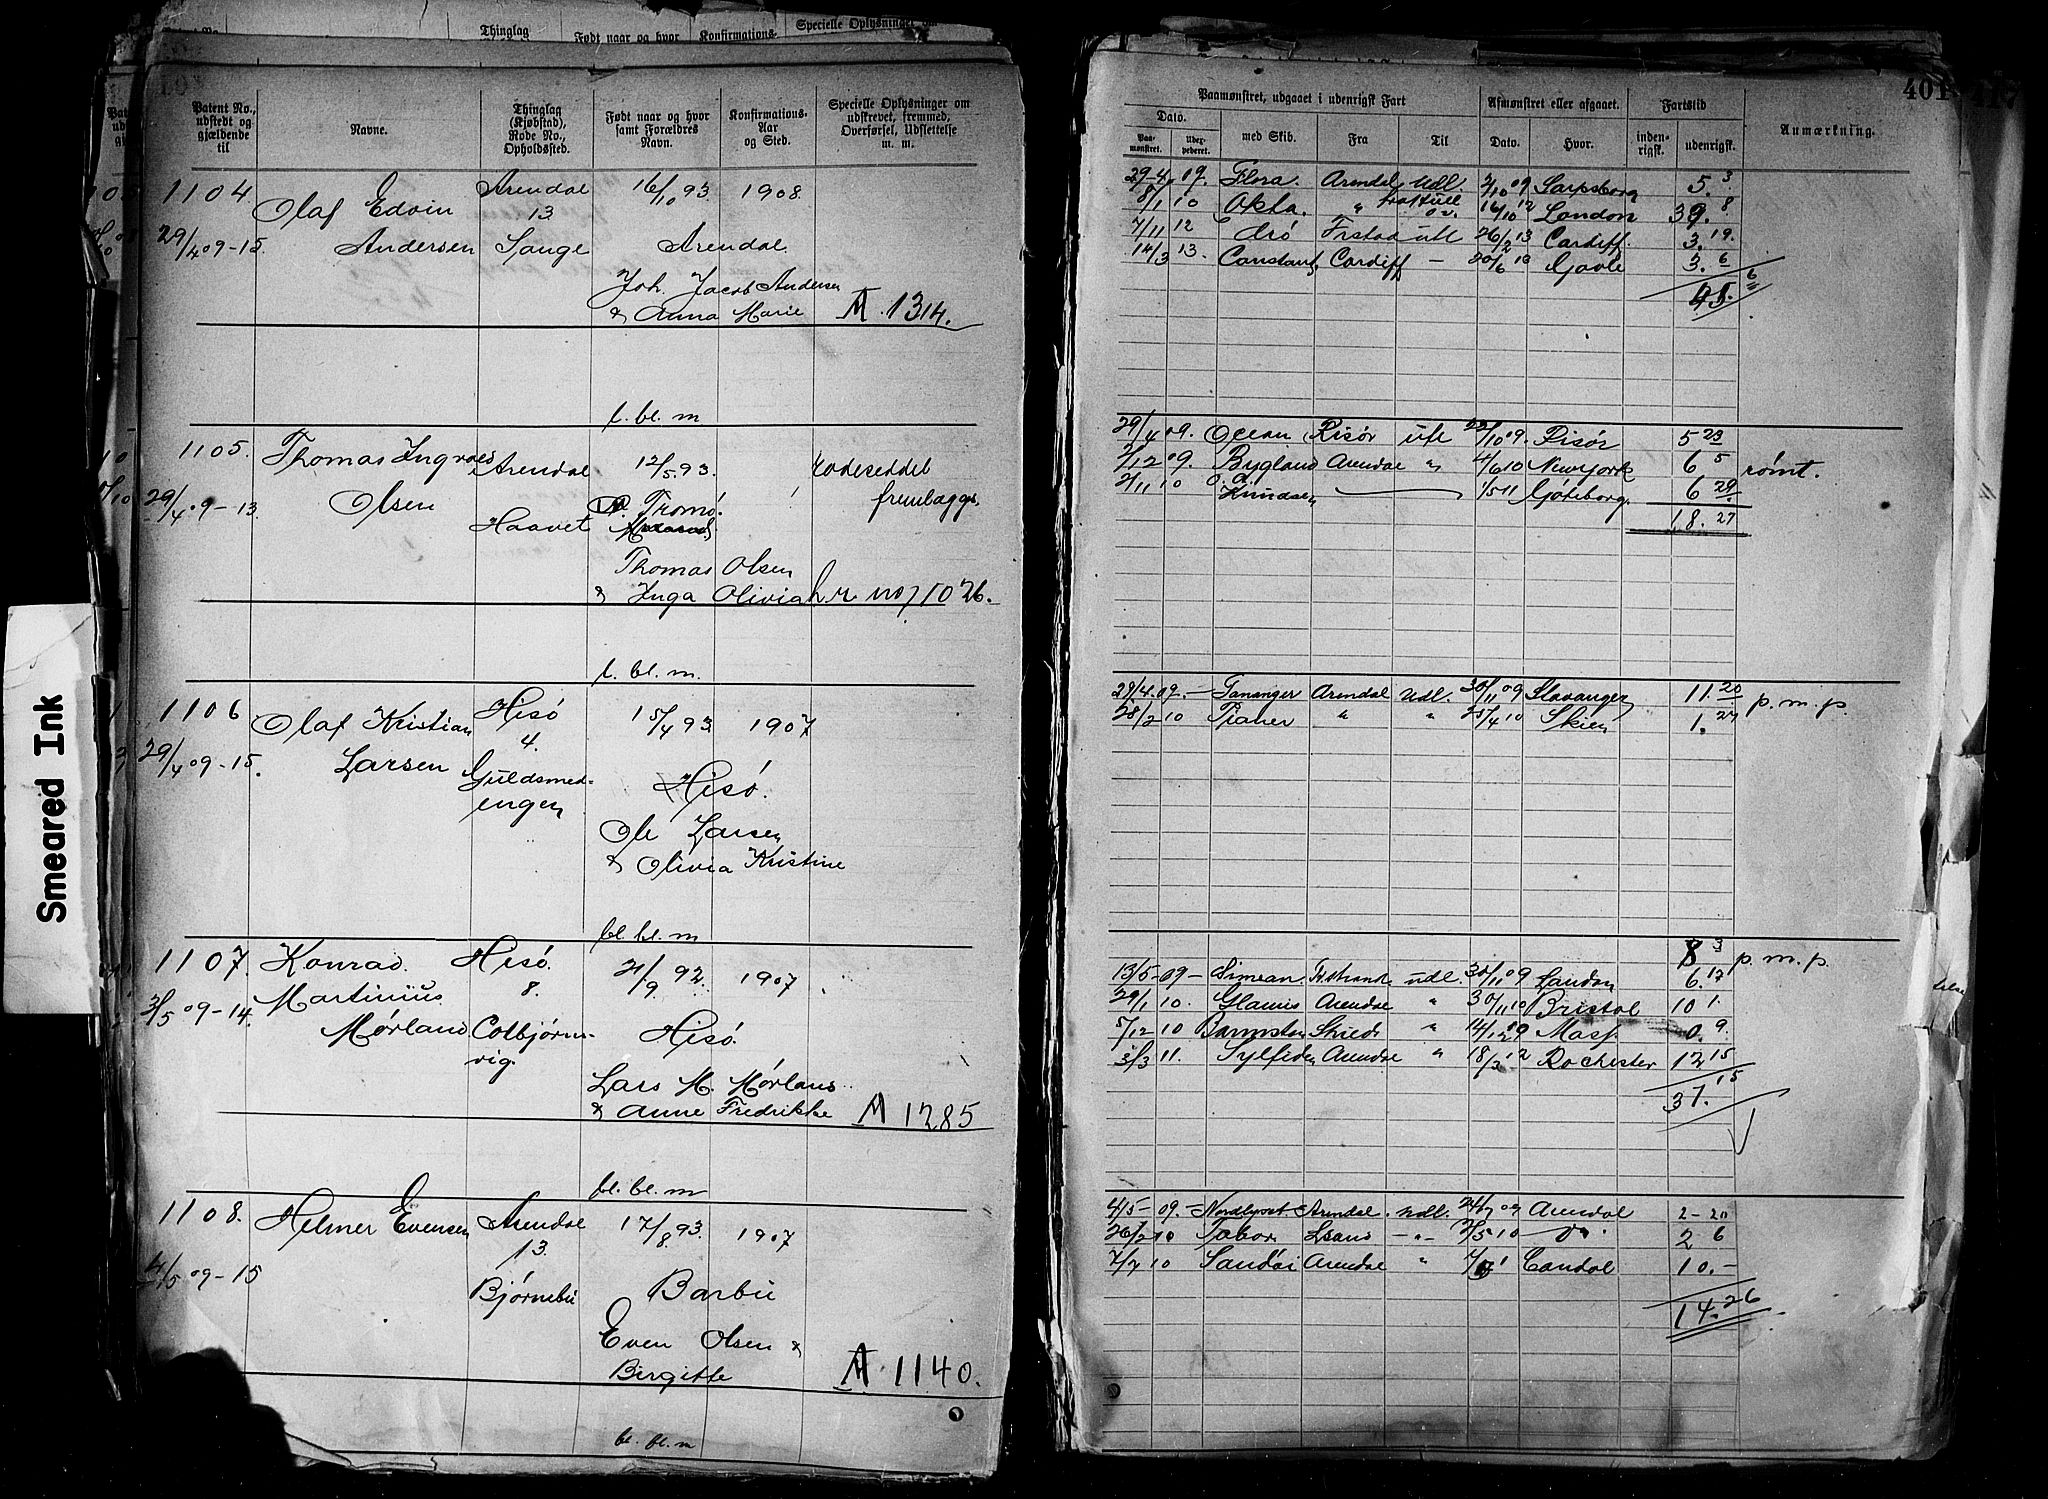 Smeared Ink
Thinglag
Født naar og hvor
Konfirmations-
Specielle Oplysninger om
Patent No., udstedt og gjældende til
Navne.
Thinglag (Kjøbstad), Rode No., Opholdssted.
Født naar og hvor samt Forældres Navn.
Konfirmations-Aar og Sted.
Specielle Oplysninger om udskrevet, fremmed, Overførsel, Udslettelse m. m.
1104 Olaf Edvin Arendal 16/10 93. 1908.
13
29/4 09-15. Andersen Lange Arendal.
Joh. Jacob Andersen
& Anna Marie A 1314.
l. bl. m
1105. Thomas Ingvald Arendal 12/5 93. rodeseddel
29/4 09-13. Olsen Haavet Tromø. fremlægges
Thomas Olsen
& Inga Olivia h.r. no 1026.
l. bl. m.
1106 Olaf Kristian Hisø 15/4 93. 1907
4.
29/4 09-15. Larsen Guldsmed-
engen Hisø.
Ole Larsen
& Olivia Kristine
bl. bl. m
1107. Konrad Hisø. 21/9 92. 1907
8.
3/5 09-14. Martinius
Mørland Colbjørns-
vig. Hisø.
Lars M. Mørland
& Anne Fredrikke A 1285
bl. bl. m
1108. Helmer Evensen Arendal 17/8 93. 1907
13.
4/5 09-15 Bjørnebu Barbu
Even Olsen &
Birgitte A 1140.
bl. bl. m
401
417
Paamønstret, udgaaet i udenrigsk Fart
Afmønstret eller afgaaet.
Fartstid
Anmærkning.
Dato.
Paa-mønstret.
med Skib.
Fra
Til
Dato.
Hvor.
inden-rigsk.
udenrigsk.
29-4 09. Flora. Arendal Udl. 2/10 09 Sarpsborg 5. 3
8/1 10 Okta. " 16/10 12 London 39. 8
7/11 12 Frstad utl 26/2 13 Cardiff. 3. 19.
14/3 13. Cardiff - Gavle 3. 6
45. 6
29/4 09. Ocean Risør utl 22/10 09. Risør 5 23
2/12 09. Bygland Arendal " 4/6 10 NewYork 6 5 rømt.
2/11 10 O. A. Knudsen 1/5 11 Göteborg. 6 29
18. 27
29/4. 09. - Tananger Arendal Udl. 30/11 09 Stavanger 11. 20 p. m. p.
28/2 10 " " 25/4 10 Skien 1. 27
8 3 p. m. p.
13/5-09- Simean. udl. 30/11 09 London 6. 17
29/1 10. Glamis Arendal " 30/11 10 Bristol 10 1.
5/12 10 " 14/12 Masf. 0. 9.
3/3 11. Sylfiden Arendal " 18/3 12 Rochester 12 15
37. 15
4/5- 09. Nordlyset Arendal. Udl. 09 Arendal 2-20
26/2 10 Tabor -"- 2/5 10 do. 2 6
7/7 10 Arendal " 10.-
14. 26